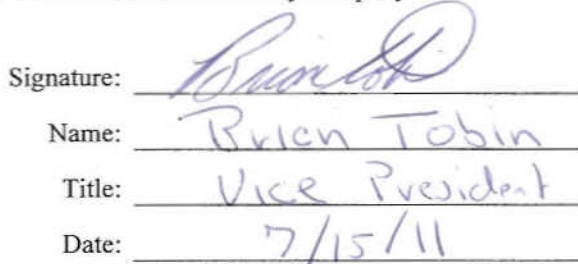 Signature: Brian Tobin
Name: Brian Tobin
Title: Vice President
Date: 7/15/11